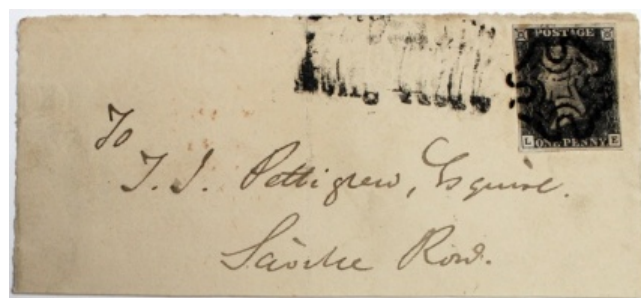 POSTAGE
L ONE PENNY E
To
T. J. Pettigrew, Esquire.
Saville Row.